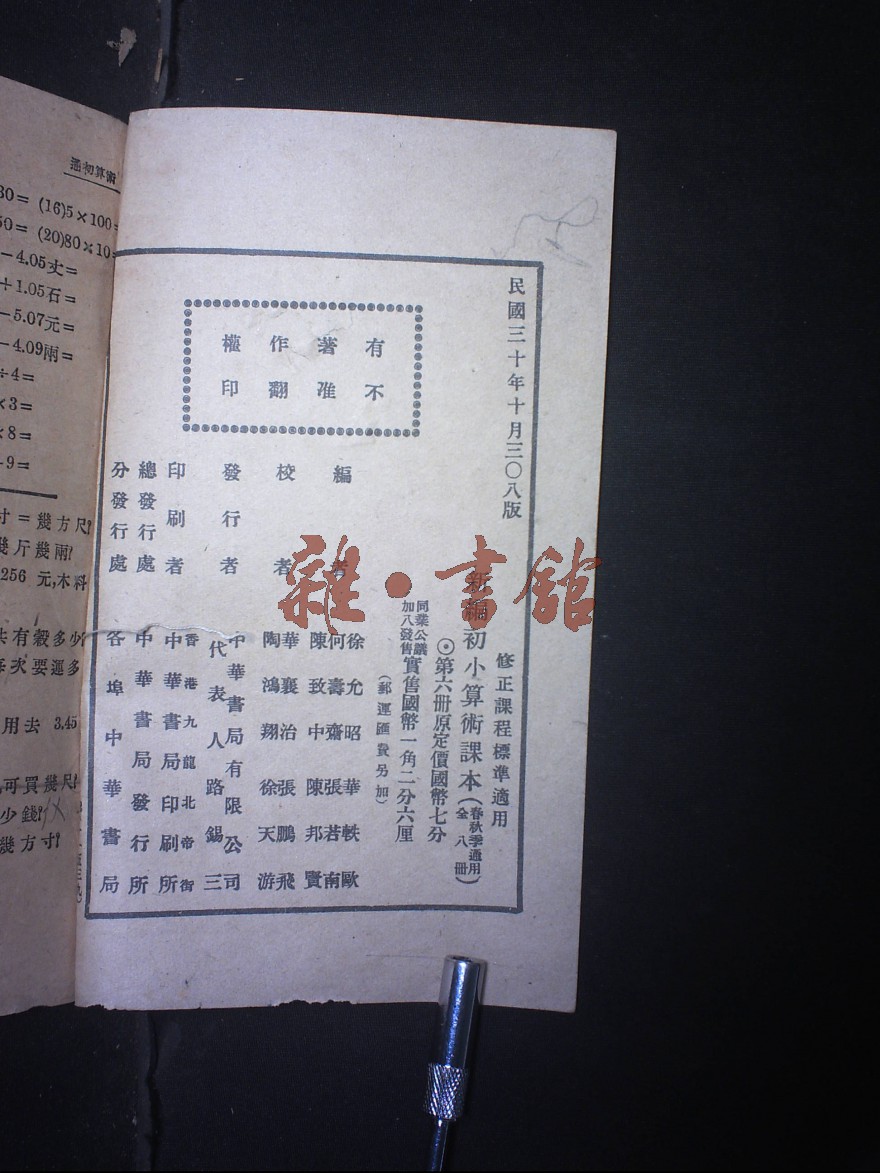 通初算術
30= (16)5×100=
50= (20)80×10=
-4.05丈=
+1.05石=
-5.07元=
-4.09兩=
÷4=
×3=
×8=
-9=
寸=幾方尺?
幾斤幾兩?
256 元,木料
共有穀多少?
每次要運多
用去 3.45
可買幾尺?
少錢?
幾方寸?
民國三十年十月三〇八版
有著作權
不准翻印
修正課程標準適用
新編初小算術課本(春秋季通用
全八冊)
◎第六册原定價國幣七分
同業公議
加八發售實售國幣一角二分六厘
(郵運匯費另加)
編者 徐允昭 華軼歐
何壽齋 張若南
陳致中 陳邦賢
校者 華襄治 張鵬飛
陶鴻翔 徐天游
發行者 中華書局有限公司
代表人路錫三
印刷者 香港九龍北帝街
中華書局印刷所
總發行處 中華書局發行所
分發行處 各埠中華書局
雜·書館